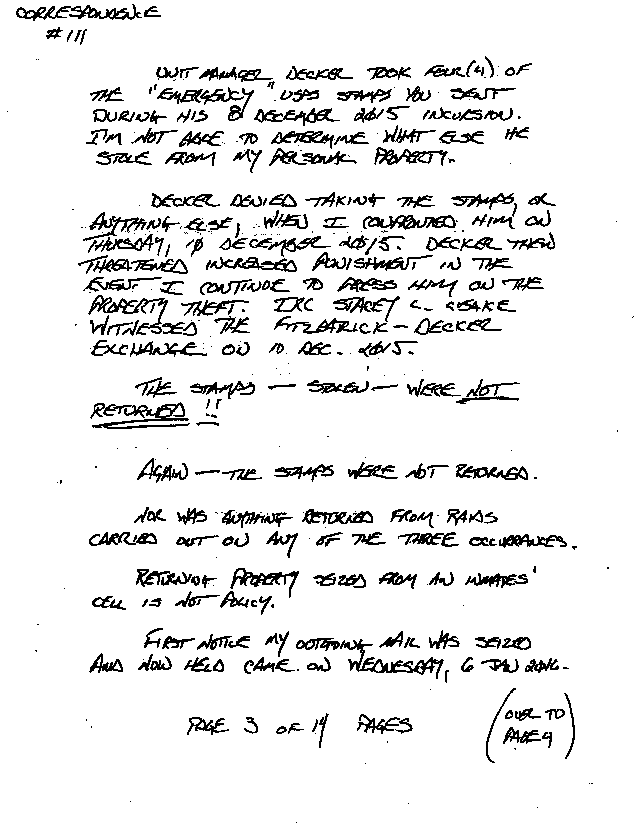 CORRESPONDENCE
#111
UNIT MANAGER DECKER TOOK FOUR(4) OF
THE "EMERGENCY" USPS STAMPS YOU SENT
DURING HIS 8 DECEMBER 2015 INCURSION.
I'M NOT ABLE TO DETERMINE WHAT ELSE HE
STOLE FROM MY PERSONAL PROPERTY.
DECKER DENIED TAKING THE STAMPS, OR
ANYTHING ELSE, WHEN I CONFRONTED HIM ON
THURSDAY, 10 DECEMBER 2015. DECKER THEN
THREATENED INCREASED PUNISHMENT IN THE
EVENT I CONTINUE TO PRESS HIM ON THE
PROPERTY THEFT. IRC STACEY L.
WITNESSED THE FITZPATRICK - DECKER
EXCHANGE ON 10 DEC. 2015.
THE STAMPS — STOLEN — WERE NOT
RETURNED !!
AGAIN — THE STAMPS WERE NOT RETURNED.
NOR WAS ANYTHING RETURNED FROM RAIDS
CARRIED OUT ON ANY OF THE THREE OCCURRANCES.
RETURNING PROPERTY SEIZED FROM AN INMATES'
CELL IS NOT POLICY.
FIRST NOTICE MY OUTGOING MAIL WAS SEIZED
AND NOW HELD CAME ON WEDNESDAY, 6 JAN 2016.
PAGE 3 OF 14 PAGES
(OVER TO
PAGE 4)